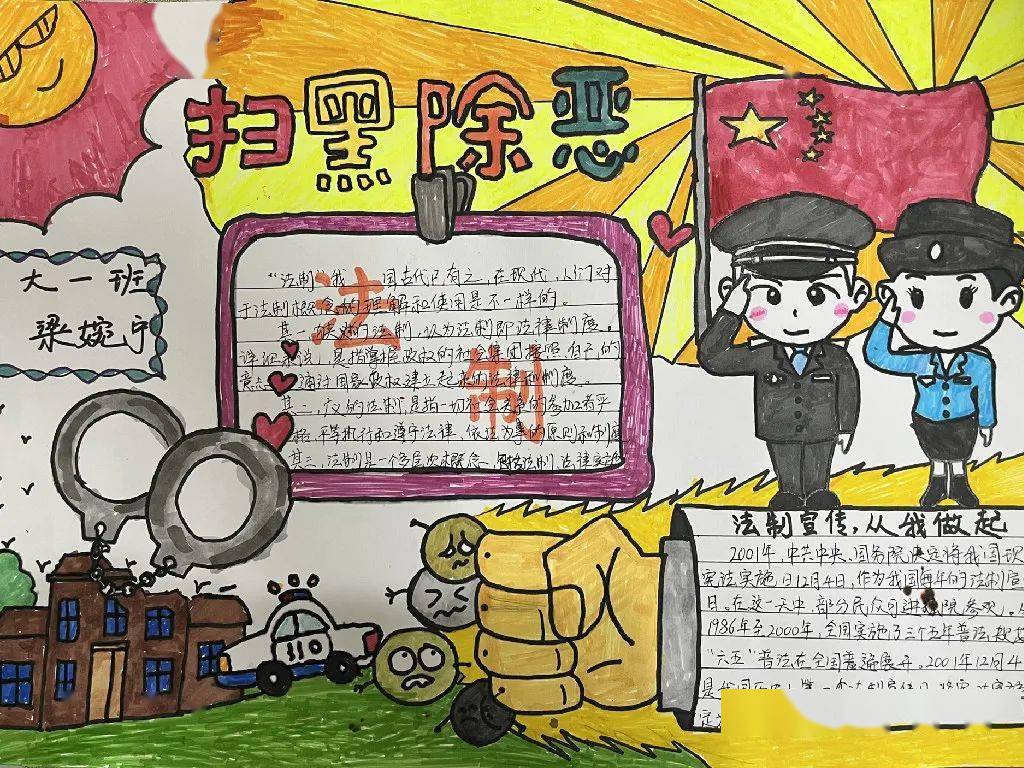 扫黑除恶
大一班
梁婉宁
法制
"法制"我 国古代已有之,在现代,人们对
于法制概念的理解和使用是不一样的。
其一 法制,认为法制即法律制度。
详细来说,是指掌握政权的社会集团按照自己的
意志 通过国家政权建立起来的法律和制度。
其二, 的法制,是指一切社会 的参加者严
格、平等执行和遵守法律,依法 的原则和制度
其三,法制是一个多层次概念, 法制 法律实
法制宣传,从我做起
2001年,中共中央、国务院决定将我国现
宪法实施日12月4日,作为我国每年的法制宣
日。在这一天中,部分民众可进 院参观。
1986年至2000年,全国实施了三个五年普法
"六五"普法在全国普遍展开,2001年12月4
是我国 一个法制宣传日
110